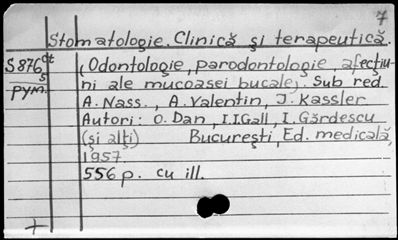 7
Stomatologie. Clinică şi terapeutică.
S876ct (Odontologie, parodontologie, afecţiu-
5
pym. ni ale mucoasei bucale). Sub red.
A. Nass., A. Valentin, J. Kassler
Autori: O. Dan, I.I. Gall, I. Gărdescu
(şi alţi) Bucureşti, Ed. medicală,
1957.
556 p. cu ill.
+